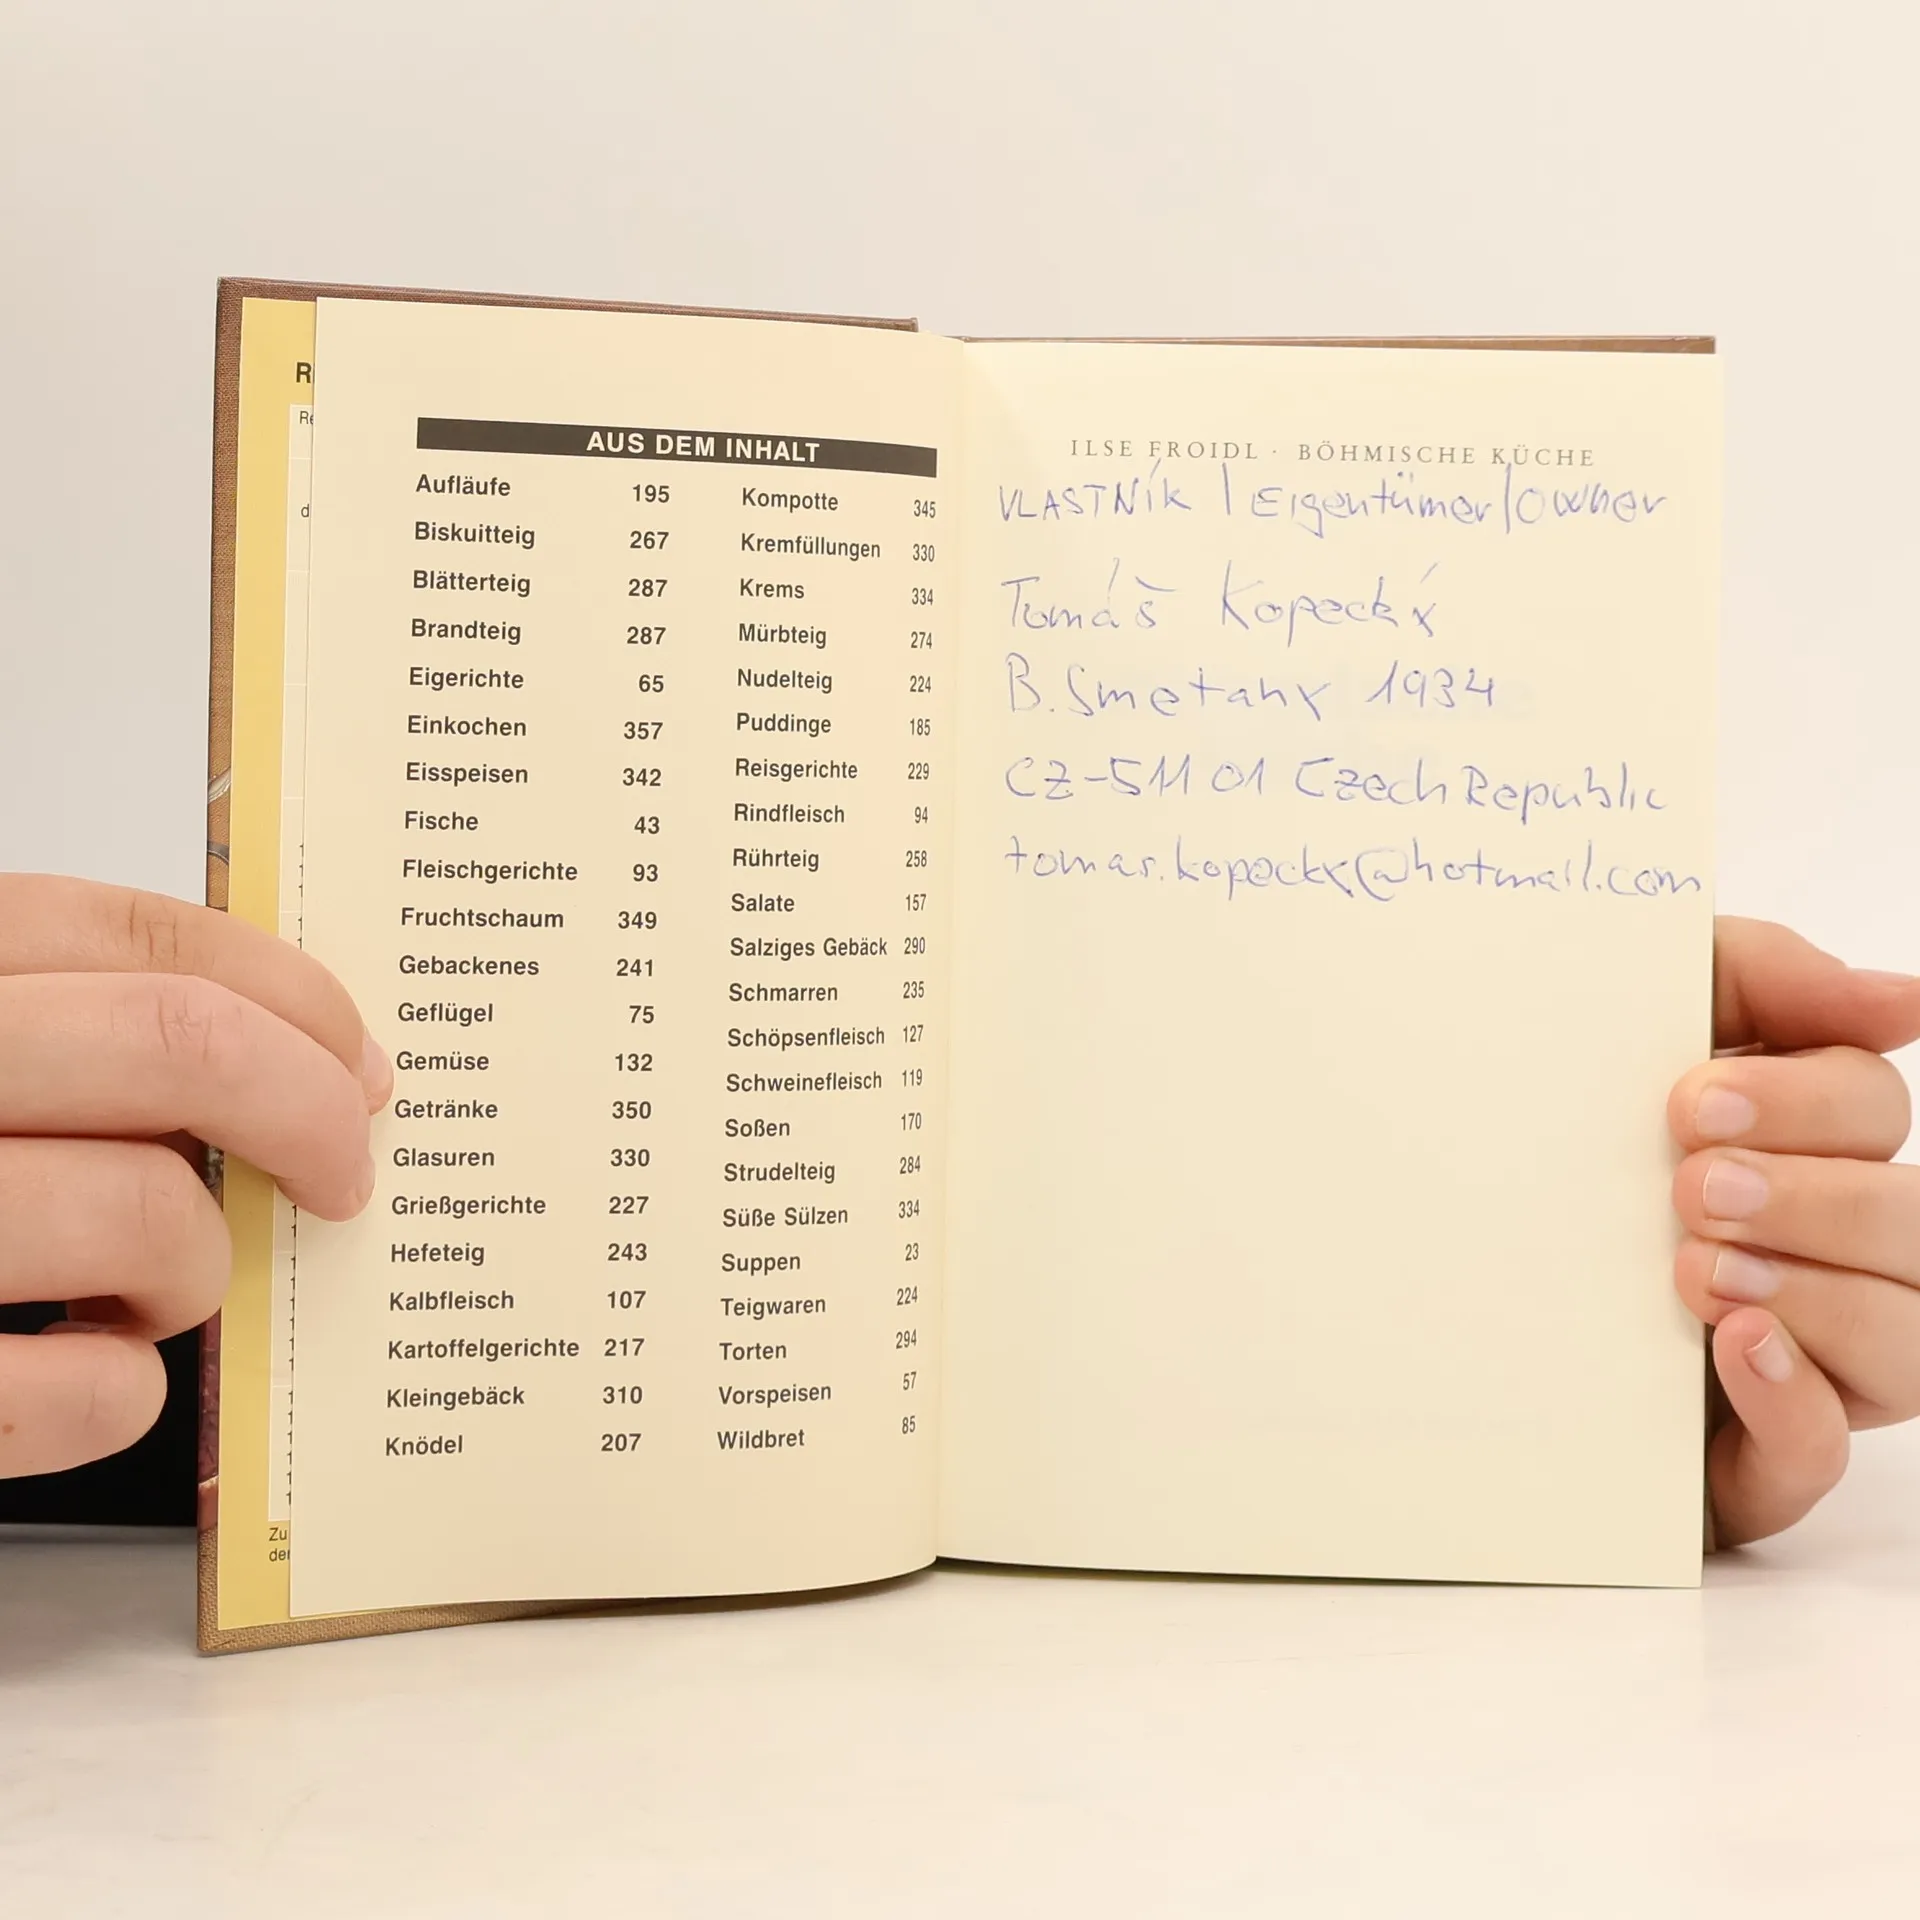 AUS DEM INHALT
Aufläufe 195
Biskuitteig 267
Blätterteig 287
Brandteig 287
Eigerichte 65
Einkochen 357
Eisspeisen 342
Fische 43
Fleischgerichte 93
Fruchtschaum 349
Gebackenes 241
Geflügel 75
Gemüse 132
Getränke 350
Glasuren 330
Grießgerichte 227
Hefeteig 243
Kalbfleisch 107
Kartoffelgerichte 217
Kleingebäck 310
Knödel 207
Kompotte 345
Kremfüllungen 330
Krems 334
Mürbteig 274
Nudelteig 224
Puddinge 185
Reisgerichte 229
Rindfleisch 94
Rührteig 258
Salate 157
Salziges Gebäck 290
Schmarren 235
Schöpsenfleisch 127
Schweinefleisch 119
Soßen 170
Strudelteig 284
Süße Sülzen 334
Suppen 23
Teigwaren 224
Torten 294
Vorspeisen 57
Wildbret 85
ILSE FROIDL · BÖHMISCHE KÜCHE
VLASTNÍK | Eigentümer | Owner
Tomáš Kopecký
B. Smetany 1934
CZ-511 01 Czech Republic
tomas.kopecky@hotmail.com